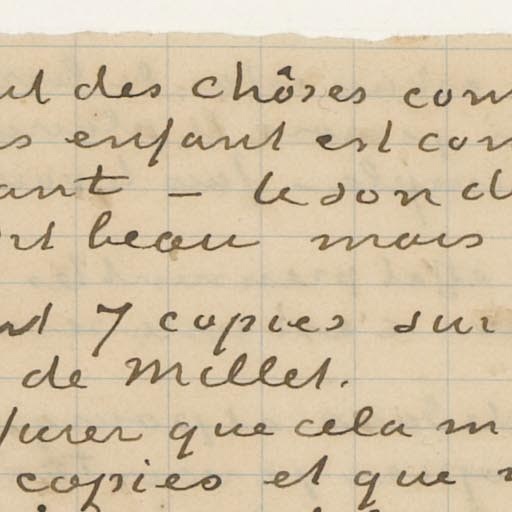 des chôses com
enfant est con
ant — le son d
est beau mais
7 copies sur
de Millet.
jurer que cela m
copies et que